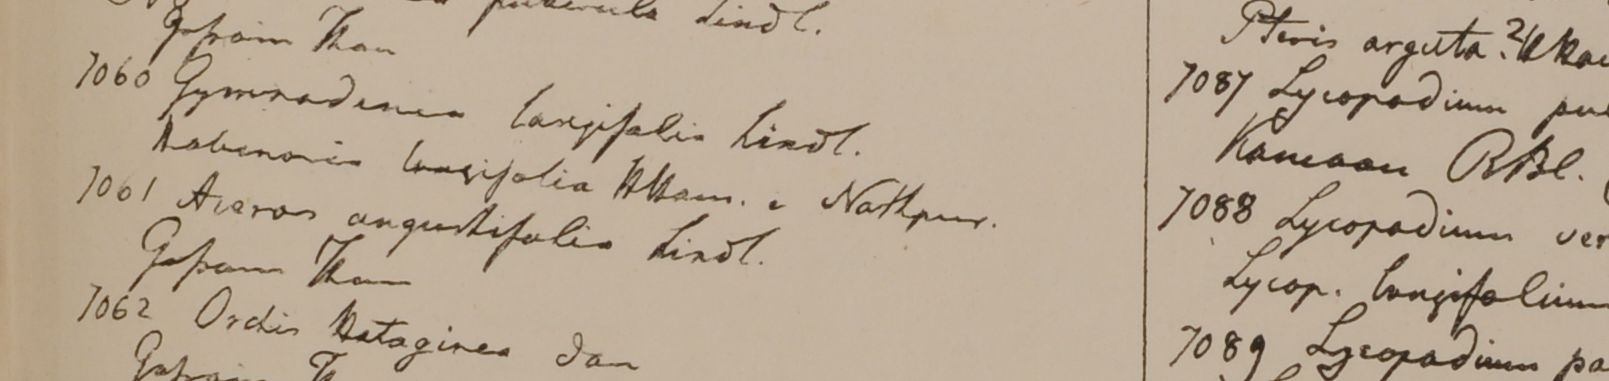 puberula Lindl.
Gosain Than
7060 Gymnadenia longifolia Lindl.
Habenaria longifolia HHam. e Nathpur.
7061 Aceras angustifolia Lindl.
Gosain Than
7062 Orchis Hatagirea Don
Gosain T
Pteris arguta? HHam
7087 Lycopodium pul
Kamaon RBl.
7088 Lycopodium ver
Lycop. longifolium
7089 Lycopodium pa